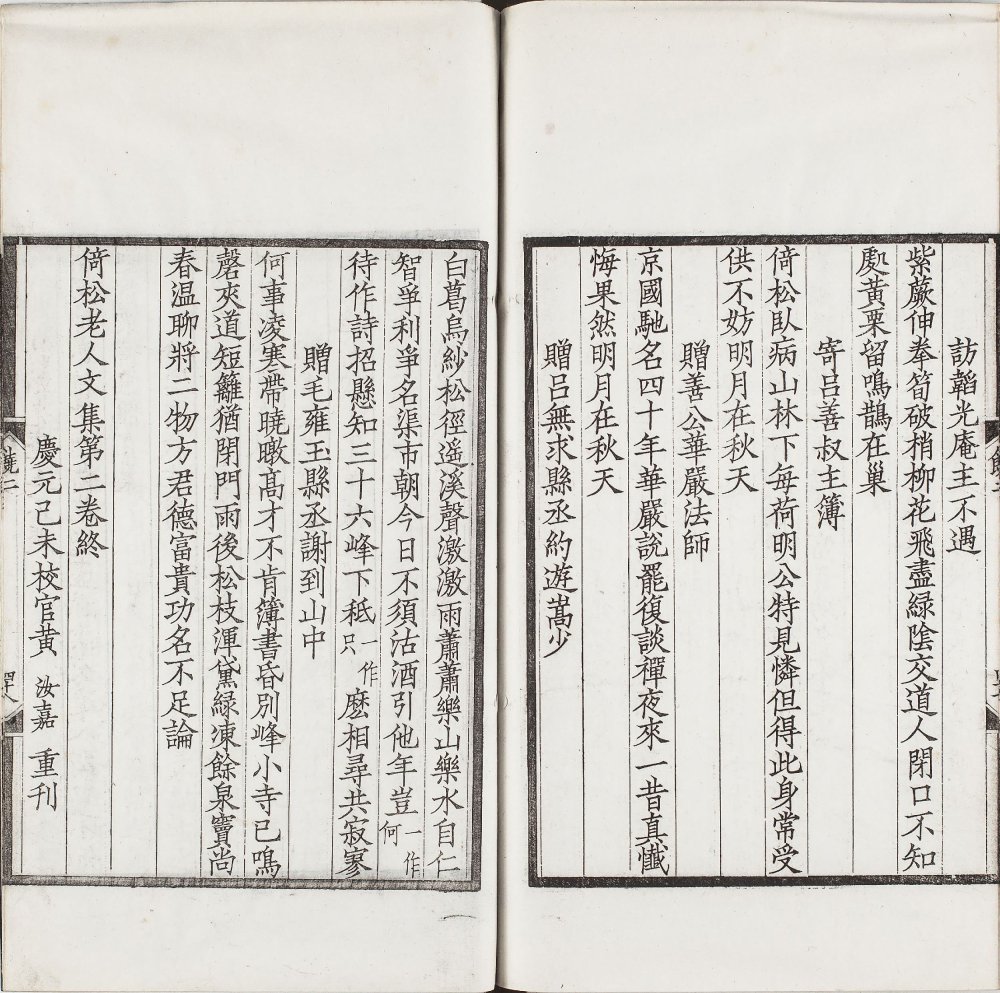 訪韜光庵主不遇
紫蕨伸拳筍破梢柳花飛盡緑陰交道人閉口不知
處黃栗留鳴鵲在巢
寄呂善叔主簿
倚松臥病山林下每荷明公特見憐但得此身常受
供不妨明月在秋天
贈善公華嚴法師
京國馳名四十年華嚴說罷復談禪夜來一昔真懺
悔果然明月在秋天
贈呂無求縣丞約遊嵩少
白葛烏紗松徑遥溪聲激激雨蕭蕭樂山樂水自仁
智爭利爭名渠市朝今日不須沽酒引他年豈一作何
待作詩招懸知三十六峰下秪一作只麽相尋共寂寥
贈毛雍玉縣丞謝到山中
何事凌寒帶曉暾髙才不肯簿書昏別峰小寺已鳴
磬夾道短籬猶閉門雨後松枝渾黛緑凍餘泉竇尚
春温聊將二物方君德富貴功名不足論
倚松老人文集第二卷終
慶元己未校官黃汝嘉重刊